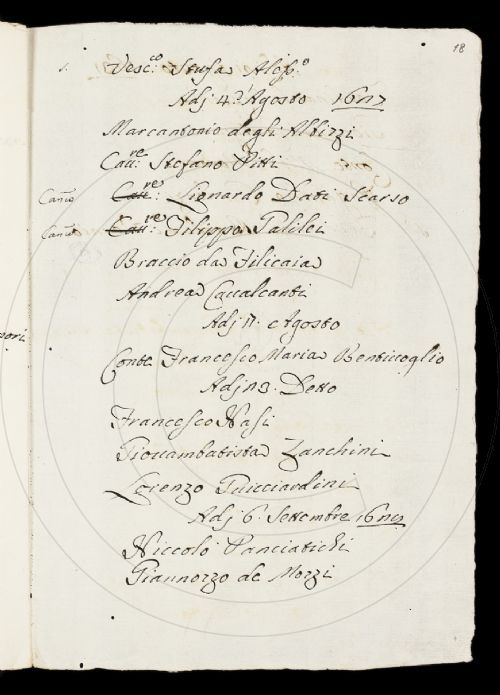 18
Vesc.co Stufa Aless.o
Adj 4. d'Agosto 1617
Marcantonio degli Albizzi
Cau.re Stefano Pitti
Can.co Cau.re Lionardo Dati Scarso
Can.co Cau.re Filippo Galilei
Braccio da Filicaia
Andrea Caualcanti
Adj 11. Agosto
pori
Conte Francesco Maria Bentiuoglio
Adj 13. Detto
Francesco Nasi
Giouambatista Zanchini
Lorenzo Guicciardini
Adj 6. Settembre
Niccolò Panciatichi
Giannozzo de Mozzi